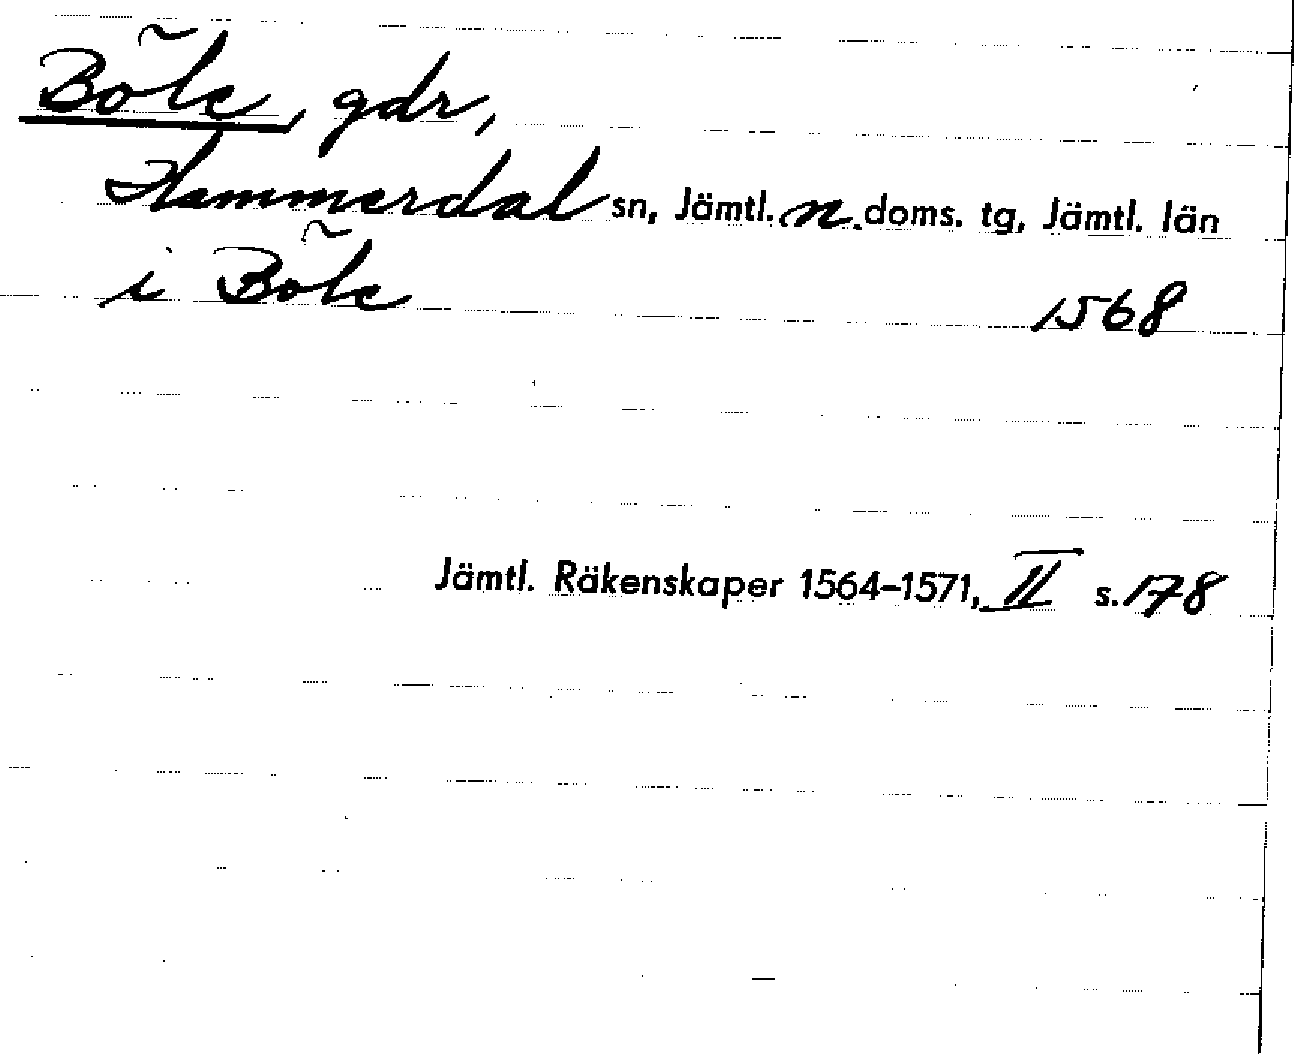 Böle, gdr,
Hammerdal sn, Jämtl. n. doms. tg, Jämtl. län
i Böle 1568
Jämtl. Räkenskaper 1564–1571, II s. 178